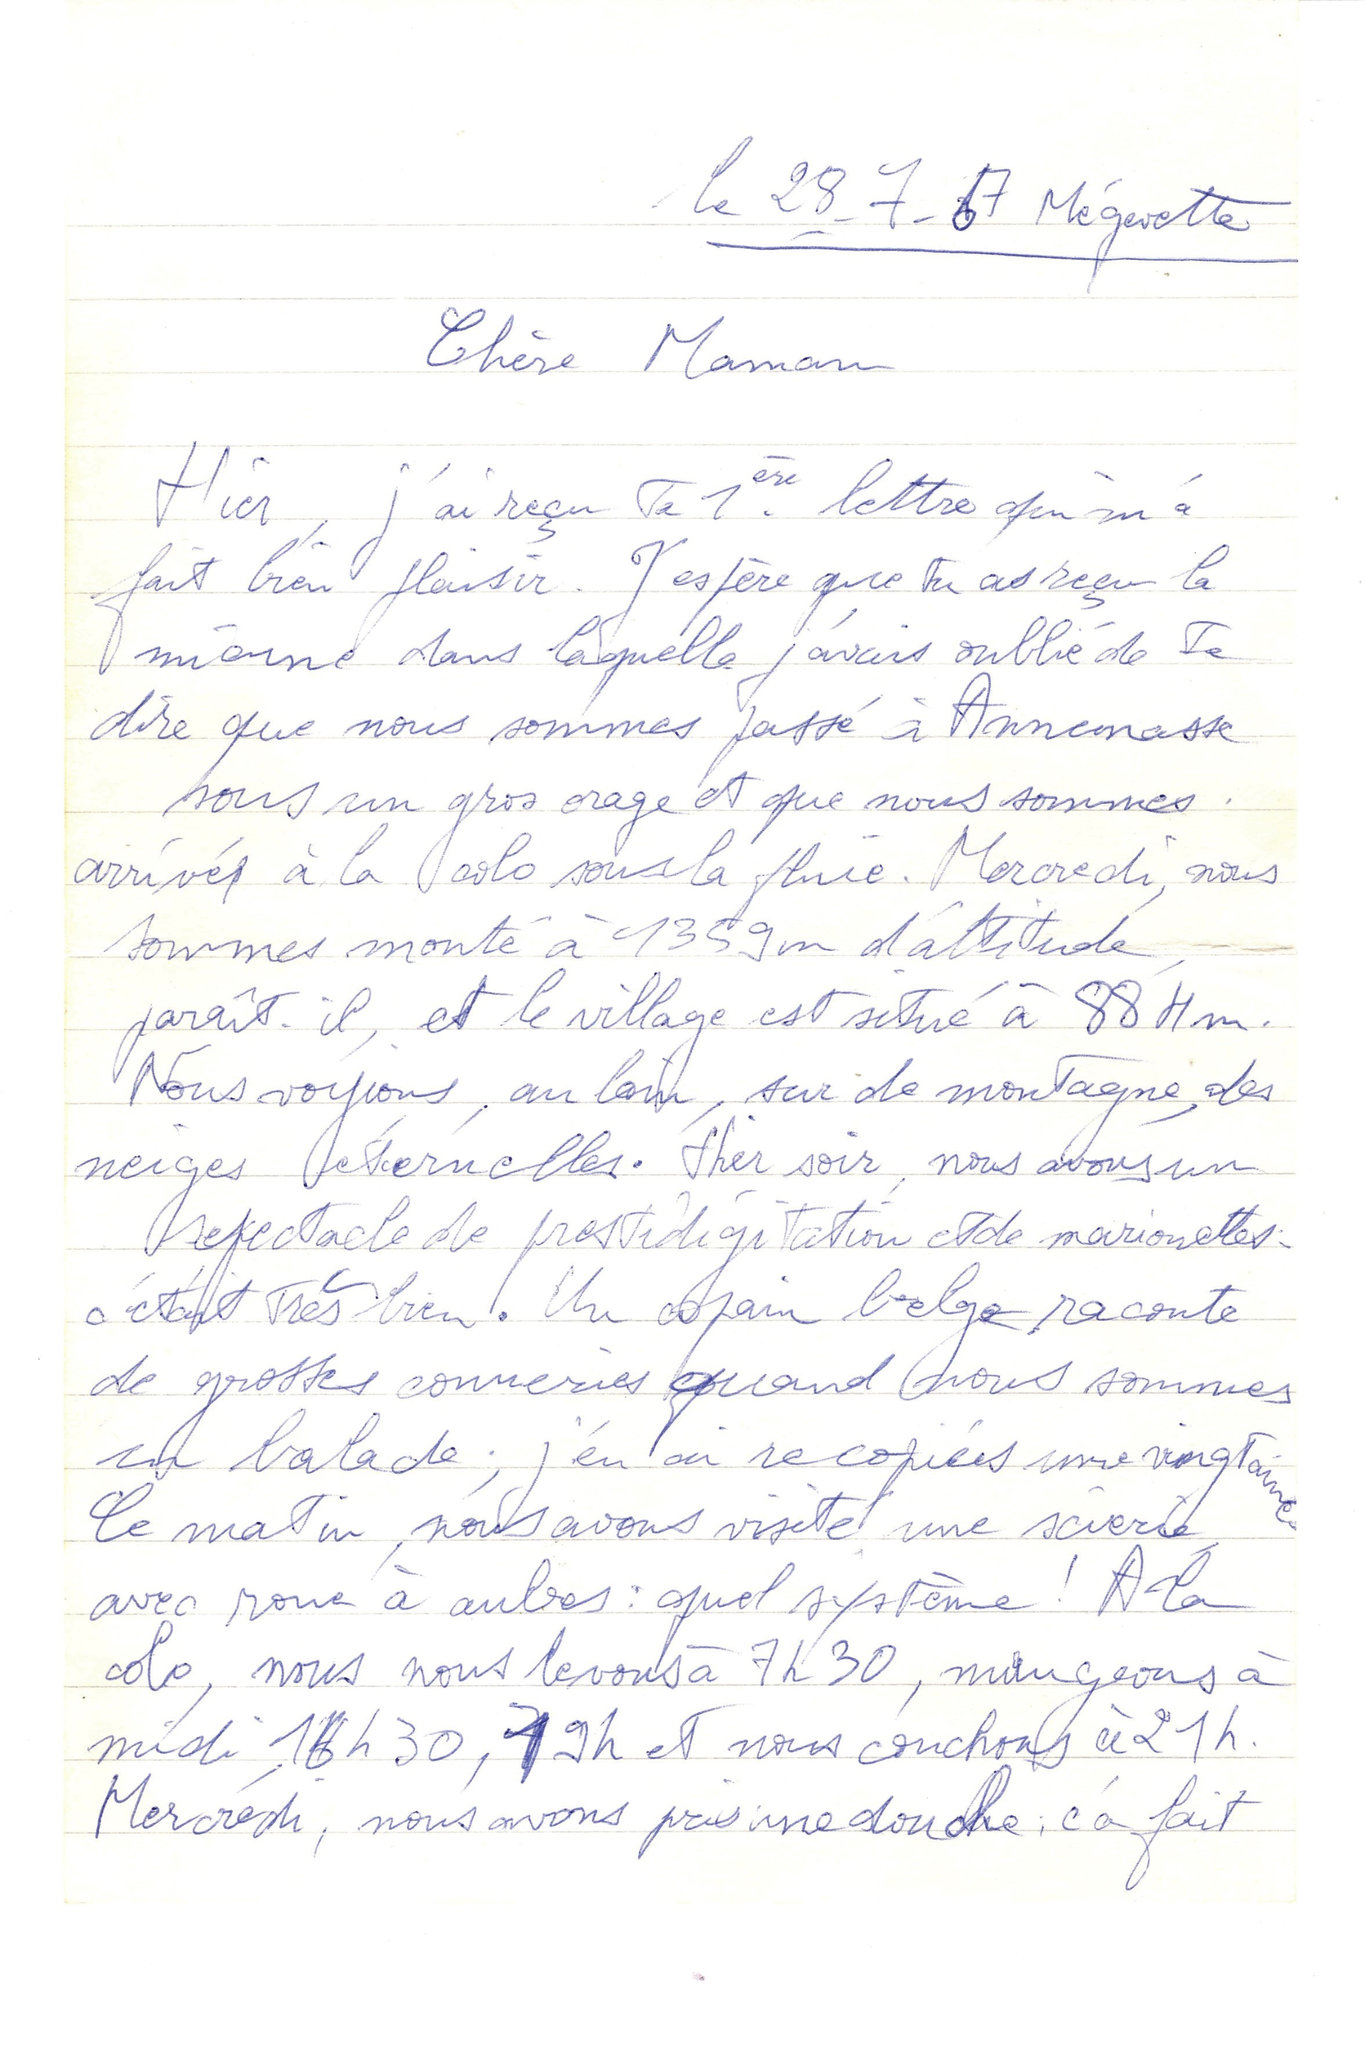 le 28-7-67 Mégevette
Chère Maman
Hier, j'ai reçu ta 1ère lettre qui m'a
fait bien plaisir. J'espère que tu as reçu la
mienne dans laquelle j'avais oublié de te
dire que nous sommes passé à Annemasse
sous un gros orage et que nous sommes
arrivés à la colo sous la pluie. Mercredi, nous
sommes monté à 1359m d'altitude,
paraît-il, et le village est situé à 884m.
Nous voyions, au loin, sur de montagne, des
neiges éternelles. Hier soir, nous avons un
spectacle de prestidigitation et de marionettes:
c'était très bien. Un copain belge raconte
de grosses conneries quand nous sommes
en balade; j'en ai recopiées une vingtaine.
Ce matin, nous avons visité une scierie
avec roue à aubes: quel système! A la
colo, nous nous levons à 7h30, mangeons à
midi, 16h30, 19h et nous couchons à 21h.
Mercredi, nous avons pris une douche: ça fait